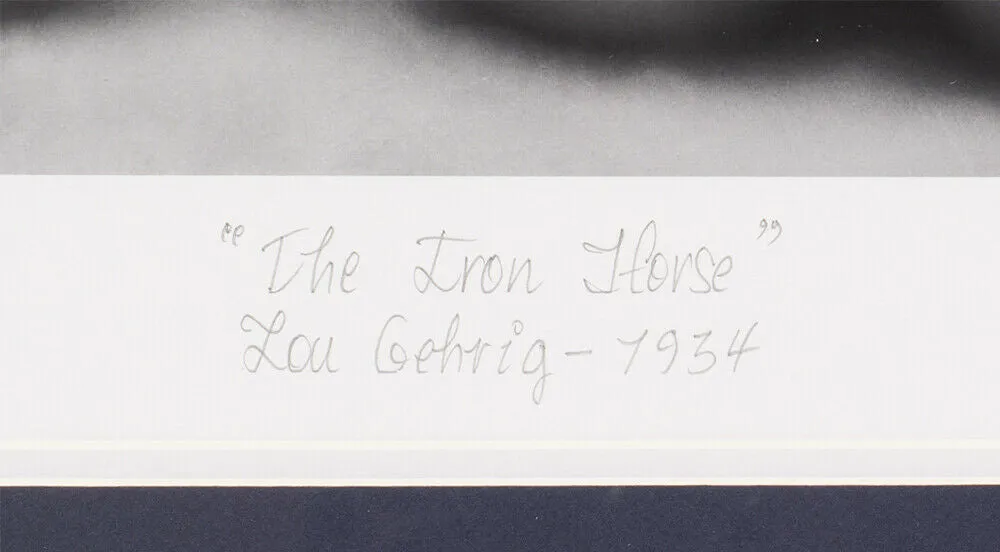 “The Iron Horse”
Lou Gehrig – 1934